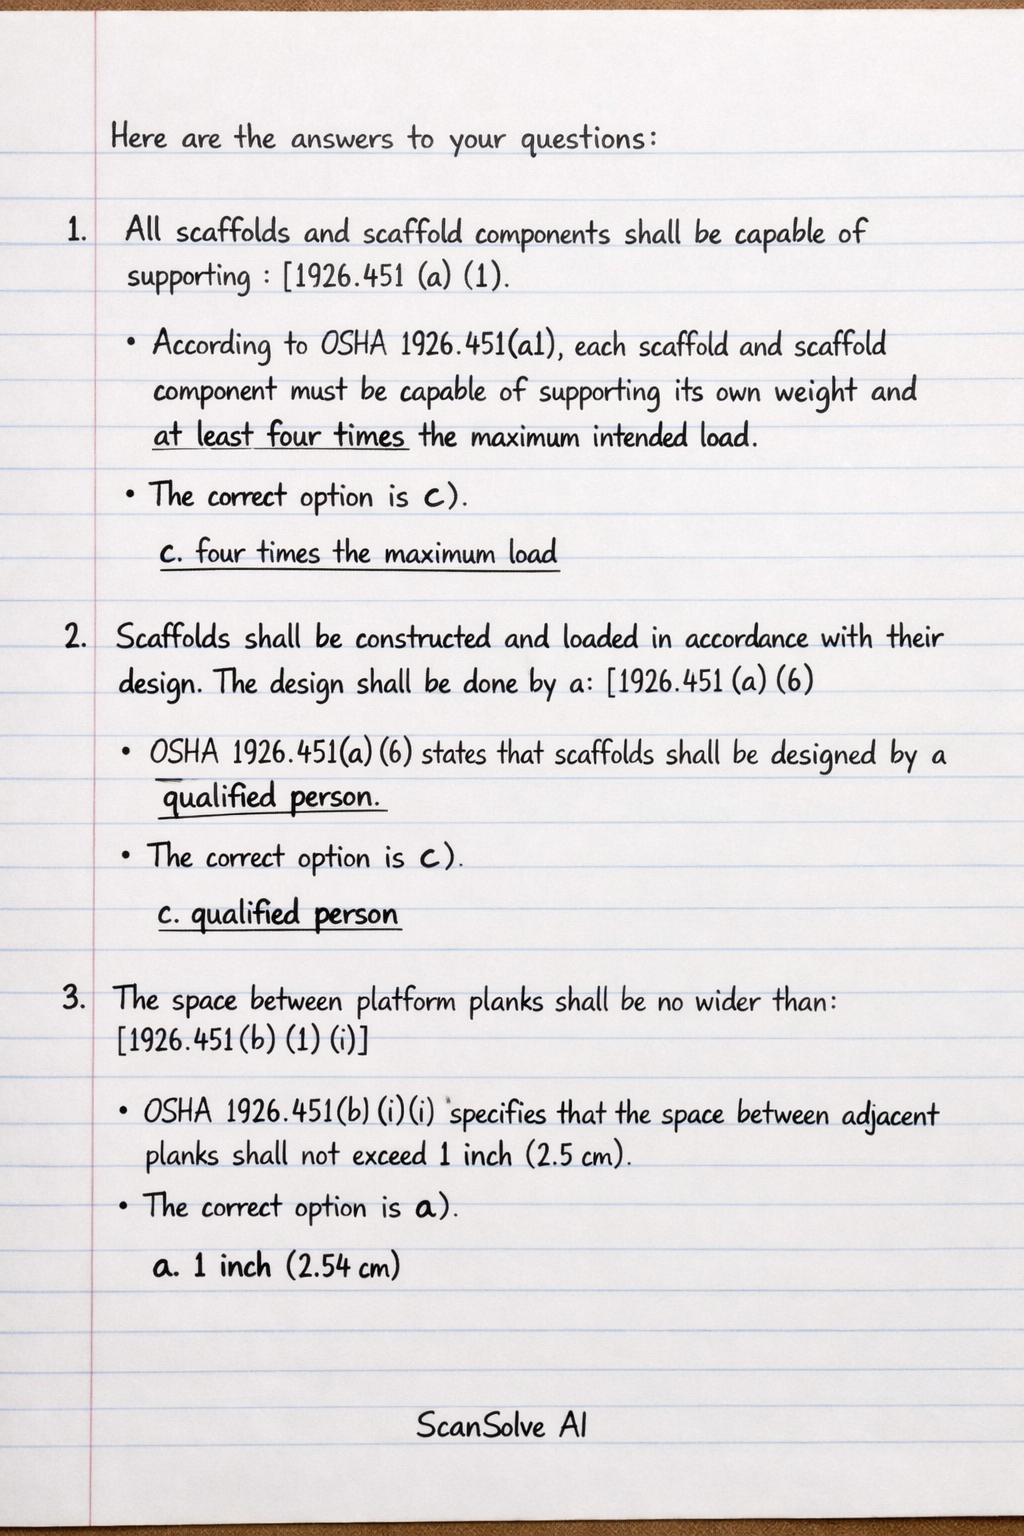 Here are the answers to your questions:
1. All scaffolds and scaffold components shall be capable of
supporting : [1926.451 (a) (1).
• According to OSHA 1926.451(a1), each scaffold and scaffold
component must be capable of supporting its own weight and
at least four times the maximum intended load.
• The correct option is c).
c. four times the maximum load
2. Scaffolds shall be constructed and loaded in accordance with their
design. The design shall be done by a: [1926.451 (a) (6)
• OSHA 1926.451(a) (6) states that scaffolds shall be designed by a
qualified person.
• The correct option is c).
c. qualified person
3. The space between platform planks shall be no wider than:
[1926.451(b) (1) (i)]
• OSHA 1926.451(b) (i)(i) specifies that the space between adjacent
planks shall not exceed 1 inch (2.5 cm).
• The correct option is a).
a. 1 inch (2.54 cm)
ScanSolve AI